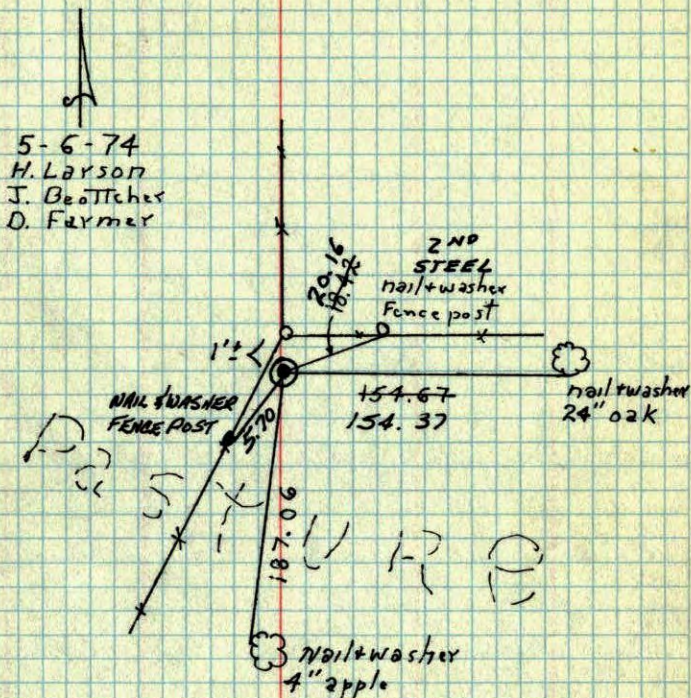 5-6-74
H. Larson
J. Beottcher
D. Farmer
2ND
STEEL
nail+washer
Fence post
20.16
1'±
NAIL & WASHER
FENCE POST
5.70
154.67
154.37
nail+washer
24" oak
PASTURE
187.06
nail+washer
4" apple